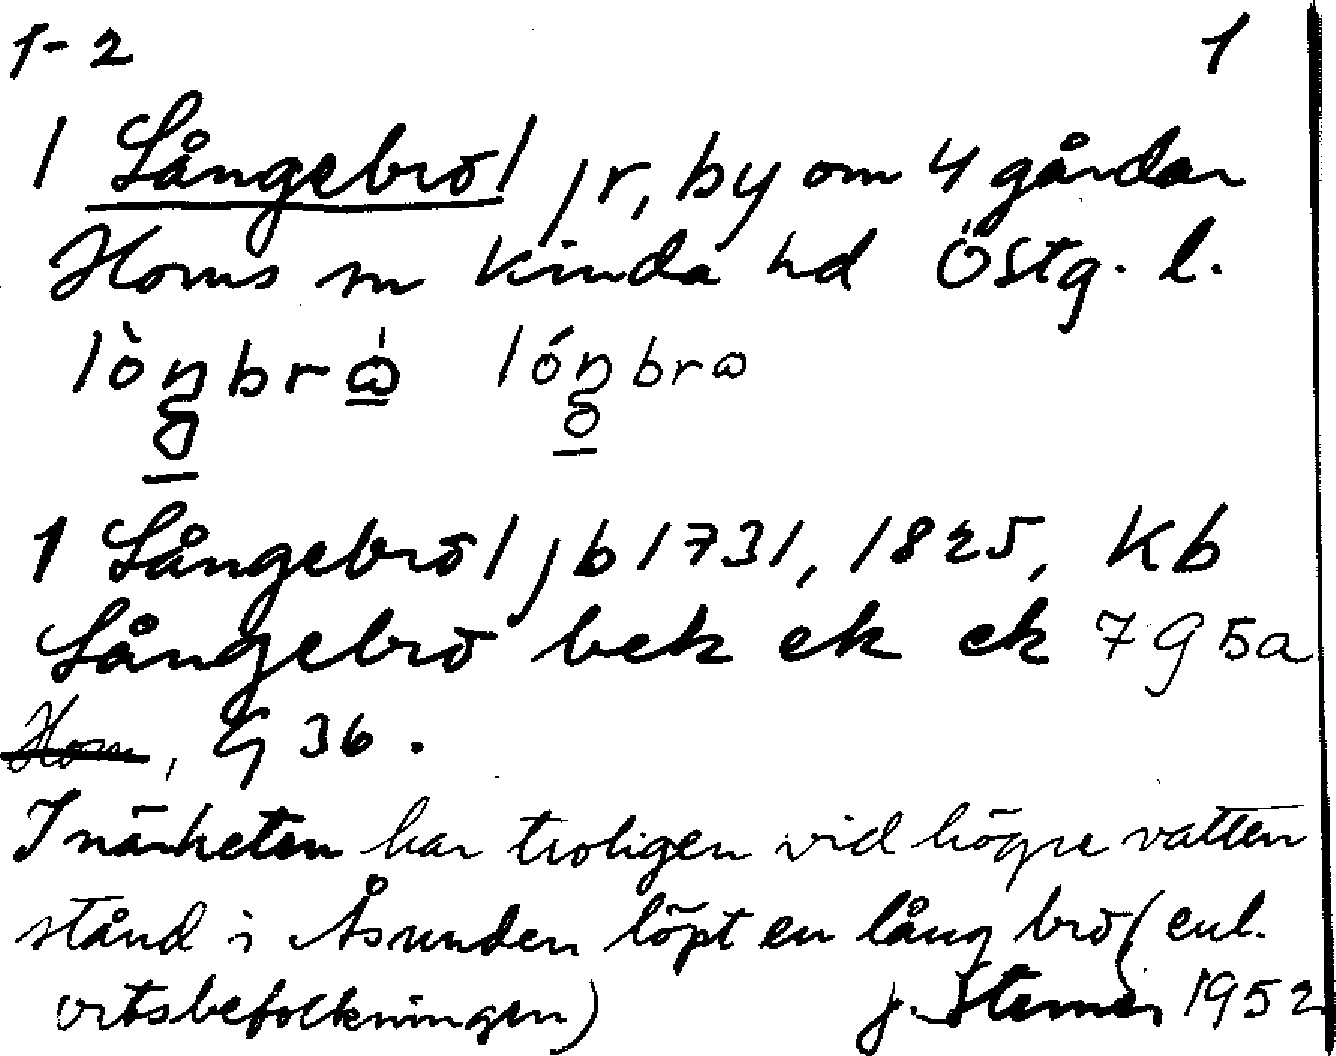 1-2 1
/ Långebro / jr, by om 4 gårdar
Horns sn Kinda hd Östg. l.
lòŋbrɷ̀ lóŋbrɷ
g g
1 Långebro / jb 1731, 1825, Kb
Långebro bek ek ck 7 9 5a
Horn, G 36.
I närheten har troligen vid högre vatten
stånd i Åsunden löpt en lång bro (enl.
ortsbefolkningen) J. Sterner 1952